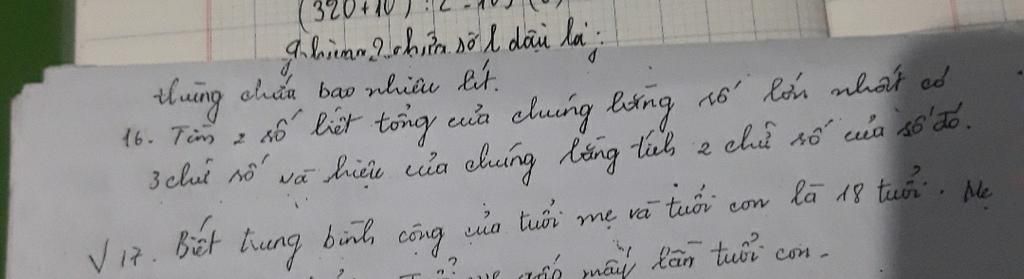 (320+10) : 2
thùng 2 chứa số l dầu là:
thùng chứa bao nhiêu lít.
16. Tìm 2 số biết tổng của chúng bằng số lớn nhất có
3 chữ số và hiệu của chúng bằng tích 2 chữ số của số đó.
√ 17. Biết trung bình cộng của tuổi mẹ và tuổi con là 18 tuổi. Mẹ
gấp mấy lần tuổi con.